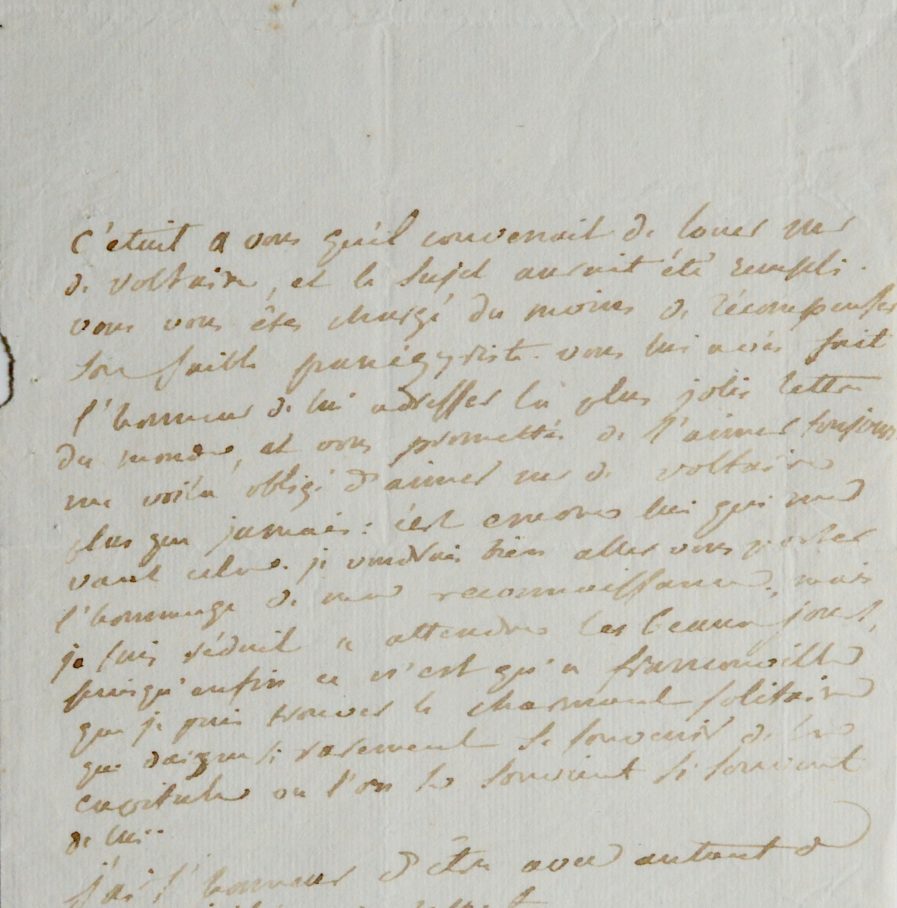 c'etait a vous qu'il convenait de louer mr
de voltaire, et le sujet aurait été rempli.
vous vous êtes chargé du moins de récompenser
son faible panégyriste. vous lui avés fait
l'honneur de lui adresser la plus jolie lettre
du monde, et vous promettés de l'aimer toujours
me voila obligé d'aimer mr de voltaire
plus que jamais: c'est encore lui qui me
vaut cela. je voudrais bien aller vous porter
l'hommage de ma reconnaissance, mais
je suis réduit a attendre les beaux jours,
puisqu'enfin ce n'est qu'a franconville
que je puis trouver le charmant solitaire
qui daigne si rarement se souvenir de la
capitale ou l'on se souvient si souvent
de lui..
j'ai l'honneur d'être avec autant de